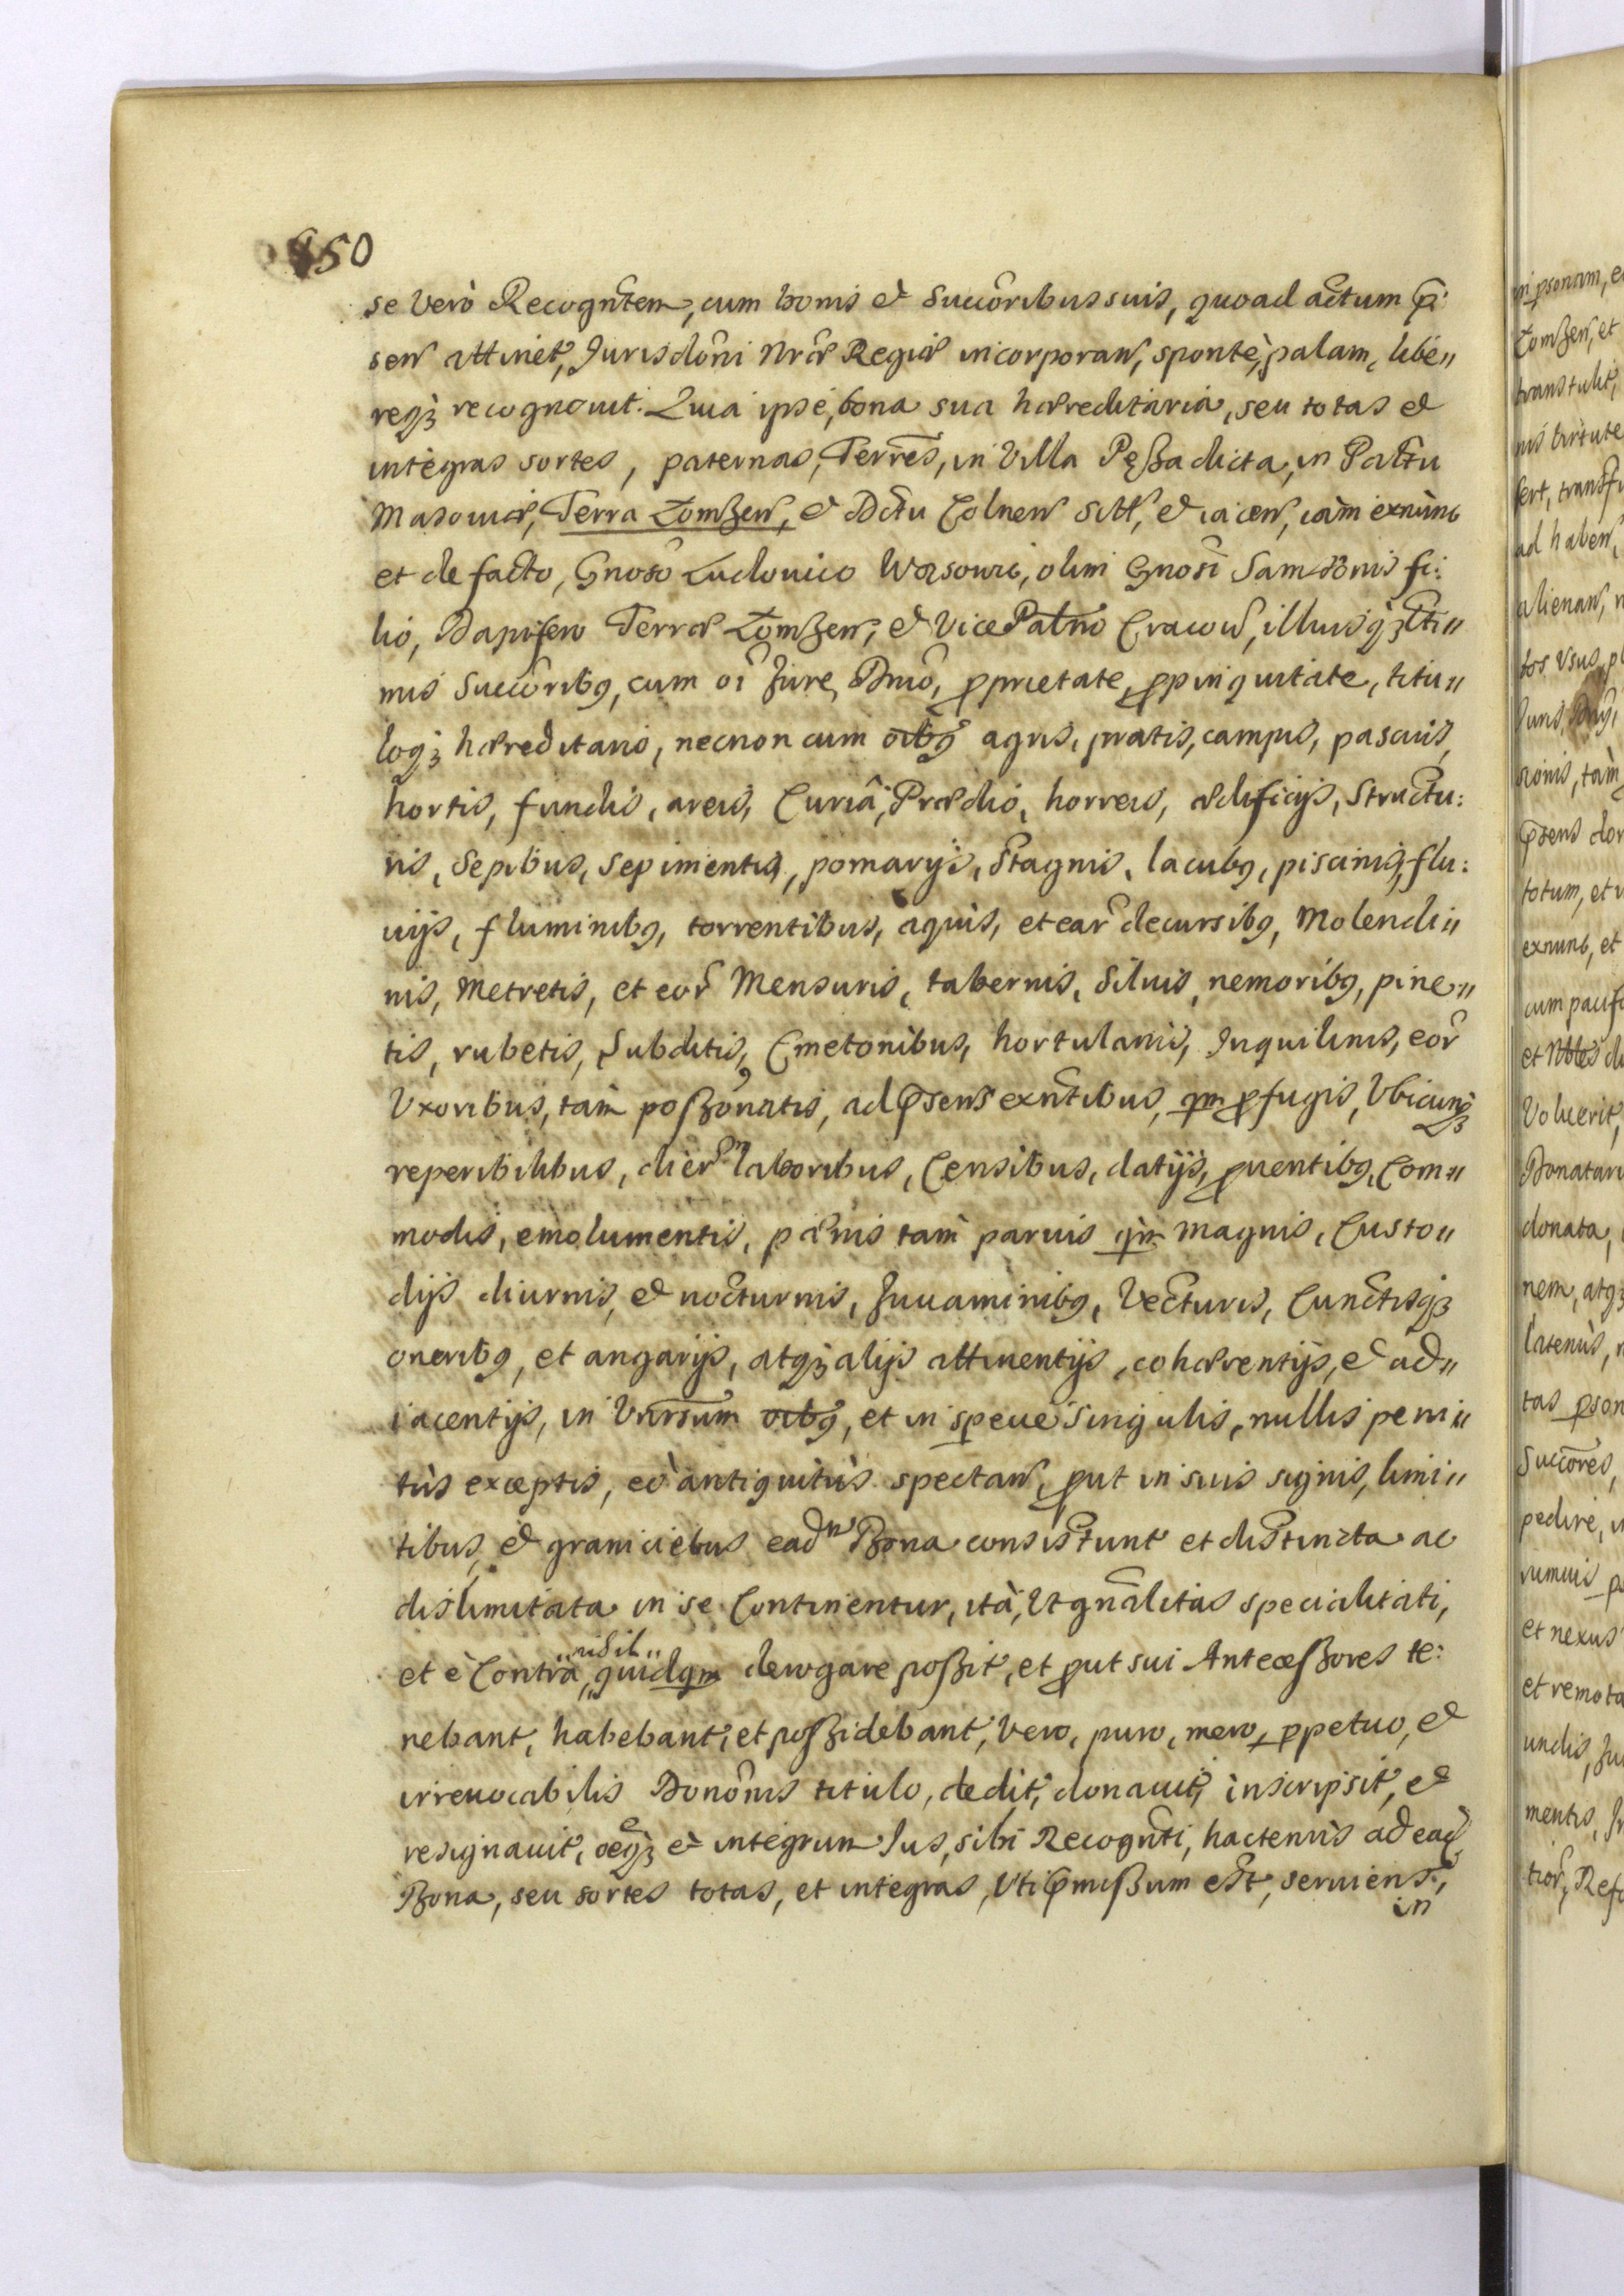 450
se verò Recogn̄tem, cum bonis et Succ̄oribus suis, quoad actum p̄:
sen̄ attinet, Jurisdōni Nræ Regiæ incorporan̄, sponte, palam, libe„
reqȝ recognouit. Quia ipse, bona sua hæreditaria, seu totas et
integras sortes, paternas, Terres̄, in Villa Pęßa dicta, in Pal̄tu
Masouiæ, Terra Łomzen̄, et Dctu Colnen̄ sitt̄, et iacen̄, iàm exnùnc
et de facto, Gnoso Ludouico Worsowic, olim Gnosi Samsonis fi:
lio, Dapifero Terræ Łomzen̄, et Vice Palno Cracou̅, illiusqȝ l̄ti„
mis Succ̄oribꝯ, cum oī Jure, Dnio, ꝓprietate, ꝓpinquitate, titu„
loqȝ hæreditario, necnon cum oibꝯ agris, pratis, campis, pascuis,
hortis, fundis, areis, Curiâ, Prædio, horreis, ædificijs, Structu:
ris, Sepibus, Sepimentis, pomarijs, Stagnis, lacubꝯ, piscinis, flu:
uijs, fluminibꝯ, torrentibus, aquis, et ear̄ decursibꝯ, Molendi„
nis, Metretis, et eor̄ Mensuris, tabernis, Siluis, nemoribꝯ, pine„
tis, rubetis, Subditis, Cmetonibus, hortulanis, Inquilinis, eor̄
Vxoribus, tàm poßōnatis, ad p̄sens exn̄tibus, qm̄ ꝓfugis, Vbicunqȝ
reperibilibus, dier̄ laboribus, Censibus, datijs, ꝓuentibꝯ, Com„
modis, emolumentis, pænis tam paruis qm̄ magnis, Custo„
dijs diurnis, et nocturnis, Juuaminibꝯ, Vecturis, Cunctisqȝ
oneribꝯ, et angarijs, atqȝ alijs attinentijs, cohærentijs, et ad„
iacentijs, in Vnr̄sum oibꝯ, et in specie Singulis, nullis peni„
tùs exceptis, eò antiquitùs spectan̄, ꝓut in suis signis, limi„
tibus, et graniciebus ead̄ᵐ Bona consistunt et distincta ac
dislimitata in se Continentur, ità, Vt gn̄alitas specialitati,
et è Contrà „nihil„ quidqm̄ derogare poßit, et ꝓut sui Anteceßores te:
nebant, habebant, et poßidebant, vero, puro, mero, ꝑpetuo, et
irreuocabilis Donōnis titulo, dedit, donauit, inscripsit, et
resignauit, oēqȝ et integrum Jus, sibi Recogn̄ti, hactenùs ad ead̄
Bona, seu sortes totas, et integras, Vti p̄mißum est, seruiens,
in